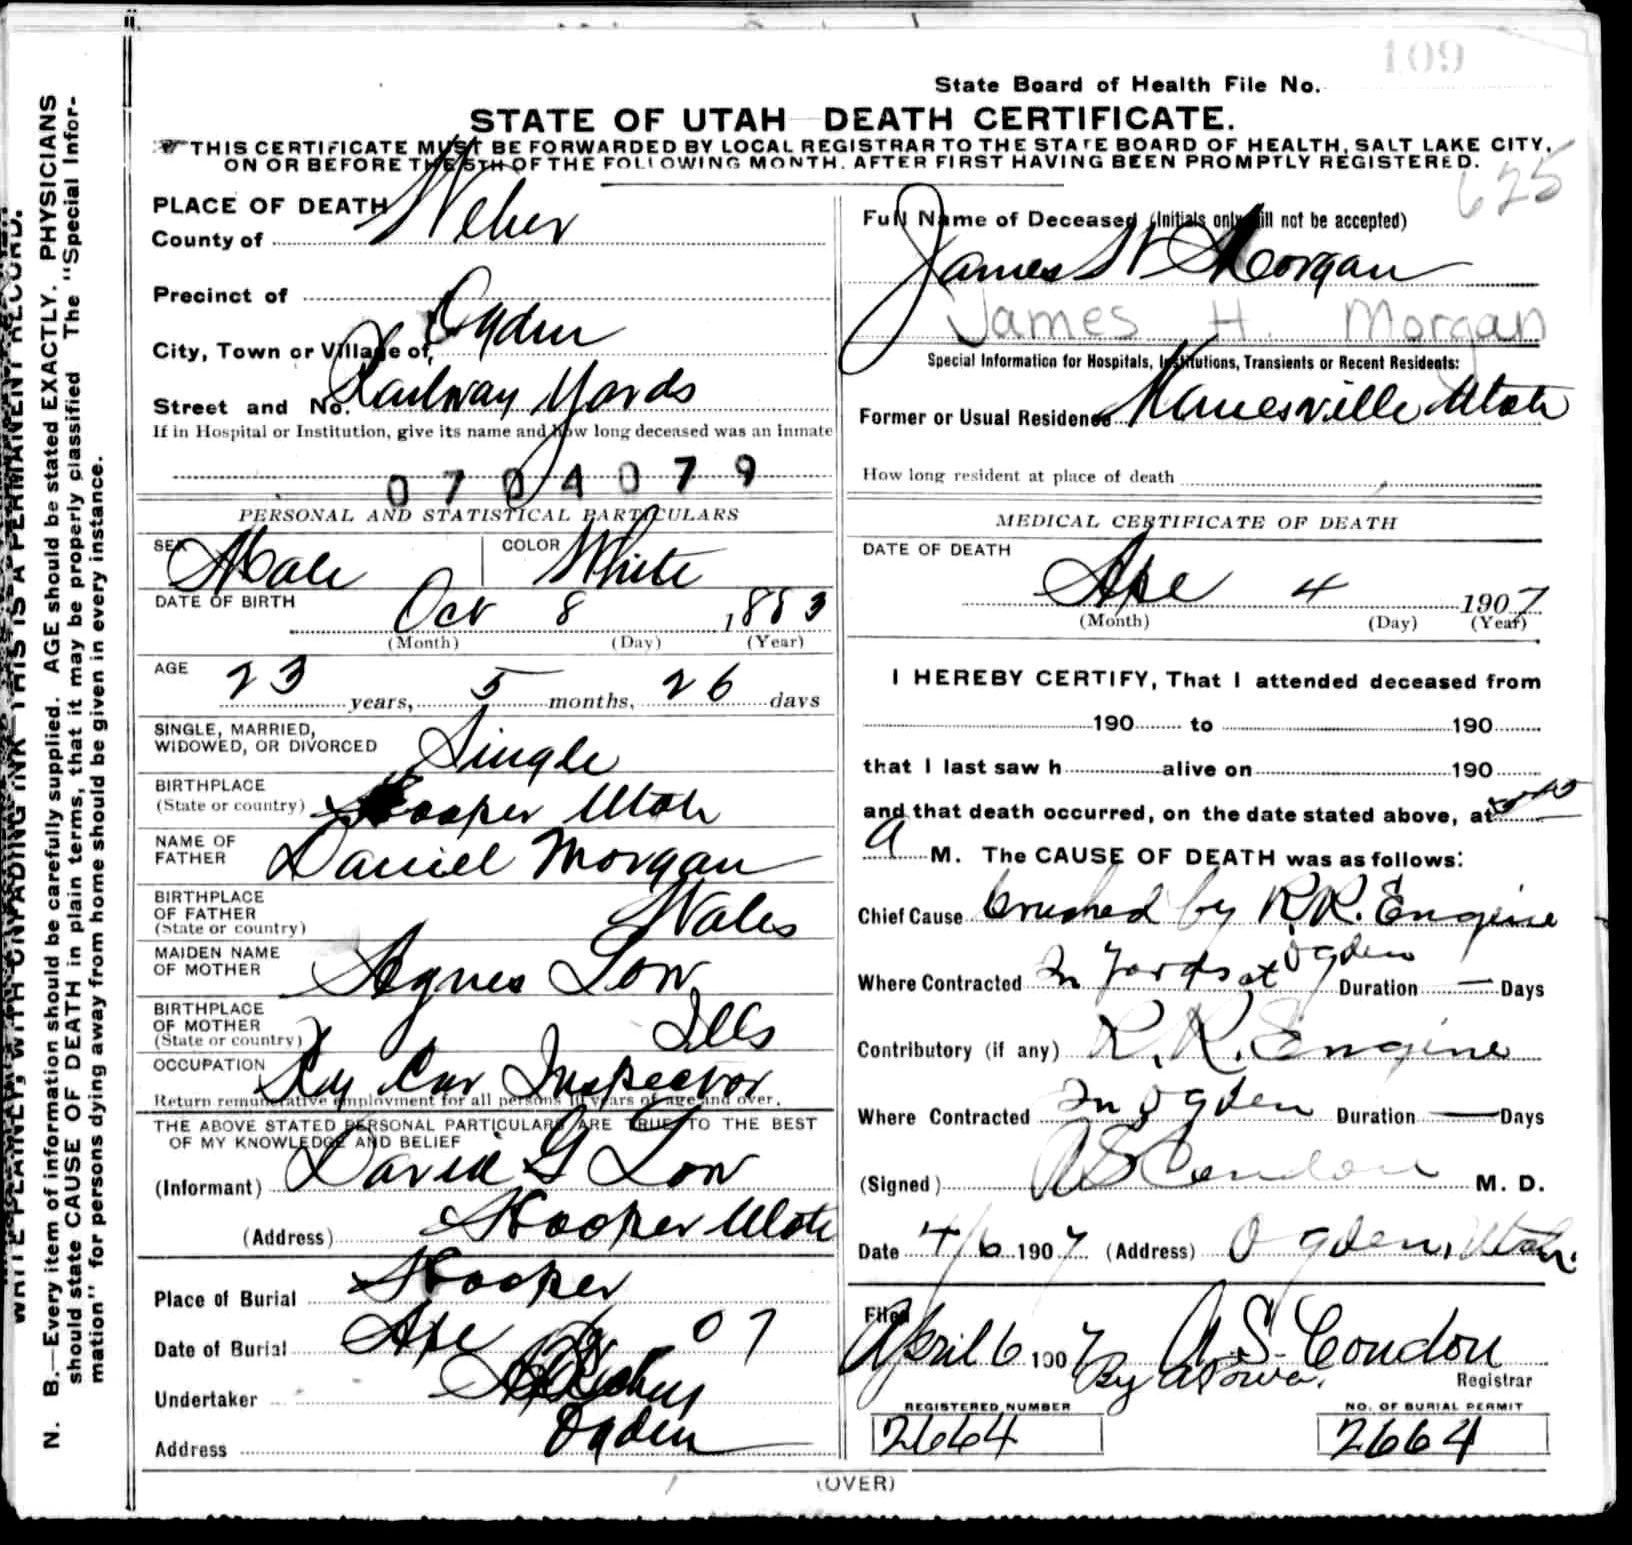 109
State Board of Health File No.
STATE OF UTAH DEATH CERTIFICATE.
THIS CERTIFICATE MUST BE FORWARDED BY LOCAL REGISTRAR TO THE STATE BOARD OF HEALTH, SALT LAKE CITY,
ON OR BEFORE THE 5TH OF THE FOLLOWING MONTH. AFTER FIRST HAVING BEEN PROMPTLY REGISTERED.
625
PLACE OF DEATH
County of Weber
Precinct of
City, Town or Village of, Ogden
Street and No. Railway Yards
If in Hospital or Institution, give its name and how long deceased was an inmate
0704079
PERSONAL AND STATISTICAL PARTICULARS
SEX Male COLOR White
DATE OF BIRTH Oct 8 1883
(Month) (Day) (Year)
AGE 23 years, 5 months, 26 days
SINGLE, MARRIED,
WIDOWED, OR DIVORCED Single
BIRTHPLACE
(State or country) Hooper Utah
NAME OF
FATHER Daniel Morgan
BIRTHPLACE
OF FATHER
(State or country) Wales
MAIDEN NAME
OF MOTHER Agnes Low
BIRTHPLACE
OF MOTHER
(State or country) Ills
OCCUPATION Ry Car Inspector
Return remunerative employment for all persons 10 years of age and over.
THE ABOVE STATED PERSONAL PARTICULARS ARE TRUE TO THE BEST
OF MY KNOWLEDGE AND BELIEF
(Informant) David G Low
(Address) Hooper Utah
Place of Burial Hooper
Date of Burial Apr 07
Undertaker
Address Ogden
Full Name of Deceased (Initials only will not be accepted)
James H Morgan
James H. Morgan
Special Information for Hospitals, Institutions, Transients or Recent Residents:
Former or Usual Residence Kanesville Utah
How long resident at place of death
MEDICAL CERTIFICATE OF DEATH
DATE OF DEATH
Apr 4 1907
(Month) (Day) (Year)
I HEREBY CERTIFY, That I attended deceased from
190 to 190
that I last saw h alive on 190
and that death occurred, on the date stated above, at
a M. The CAUSE OF DEATH was as follows:
Chief Cause Crushed by R.R. Engine
Where Contracted In Yards at Ogden Duration — Days
Contributory (if any) R.R. Engine
Where Contracted In Ogden Duration — Days
(Signed) A S Condon M. D.
Date 4/6 1907 (Address) Ogden, Utah.
Filed
April 6 1907 A. S. Condon
By
Registrar
REGISTERED NUMBER
2664
NO. OF BURIAL PERMIT
2664
(OVER)
WRITE PLAINLY, WITH UNFADING INK—THIS IS A PERMANENT RECORD.
N. B.—Every item of information should be carefully supplied. AGE should be stated EXACTLY. PHYSICIANS
should state CAUSE OF DEATH in plain terms, that it may be properly classified The "Special Infor-
mation" for persons dying away from home should be given in every instance.